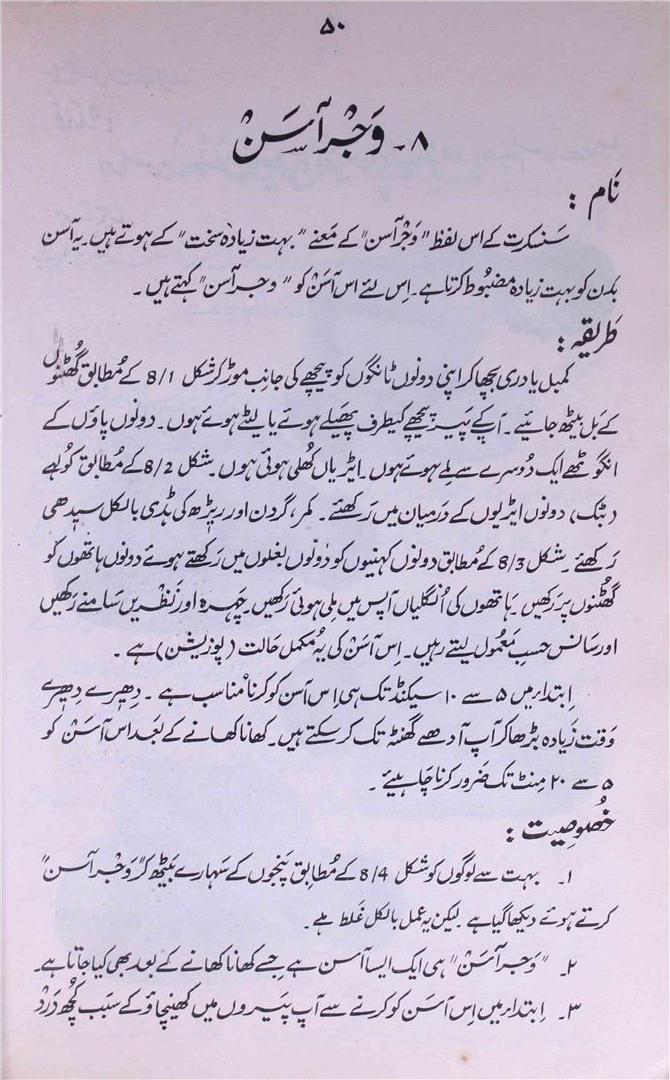 ۵۰
۸۔ وَجْر آسَنْ
نَام :
سَنسکرت کے اس لفظ ”وَجْر آسن“ کے مَعنے ”بہت زیادہ سخت“ کے ہوتے ہیں۔ یہ آسن
بدن کو بہت زیادہ مضبُوط کرتا ہے۔ اِس لئے اس آسَنْ کو ”وجر آسن“ کہتے ہیں۔
طَریقہ :
کمبل یا دری بچھا کر اپنی دونوں ٹانگوں کو پیچھے کی جانِب موڑ کر شکل 8/1 کے مُطابق گُھٹنوں
کے بَل بیٹھ جائیے۔ آپکے پَیر پیچھے کیطرف پھیلے ہوئے یا لیٹے ہوئے ہوں۔ دونوں پاؤں کے
انگوٹھے ایک دُوسرے سے ملے ہوئے ہوں۔ ایڑیاں کُھلی ہوئی ہوں۔ شکل 8/2 کے مُطابق کُولہے
(بٹک) دونوں ایڑیوں کے دَرمیان میں رَکھئے۔ کمر، گردن اور ریڑھ کی ہڈی بالکل سیدھی
رَکھئے۔ شکل 8/3 کے مُطابق دونوں کہنیوں کو دونوں بغلوں میں رَکھتے ہوئے دونوں ہاتھوں کو
گُھٹنوں پر رَکھیں۔ ہاتھوں کی اُنگلیاں آپس میں مِلی ہوئی رَکھیں۔ چہرہ اور نَظریں سامنے رَکھیں
اور سانس حسبِ مَعمُول لیتے رہیں۔ اِس آسَنْ کی یہ مُکمل حالت (پوزیشن) ہے۔
اِبتدار میں ۵ سے ۱۰ سیکنڈ تک ہی اِس آسن کو کرنا مُناسب ہے۔ دھِیرے دھِیرے
وَقت زَیادہ بڑھا کر آپ آدھے گھنٹہ تک کر سکتے ہیں۔ کھانا کھانے کے بَعد اس آسَنْ کو
۵ سے ۲۰ مِنٹ تک ضَرور کرنا چاہیئے۔
خُصُوصِیت :
۱۔ بہت سے لوگوں کو شکل 8/4 کے مُطابق پَنجوں کے سَہارے بَیٹھ کر ”وَجْر آسن“
کرتے ہوئے دیکھا گیا ہے لیکن یہ عمل بالکل غَلط ہے۔
۲۔ ”وَجر آسَنْ“ ہی ایک ایسا آسن ہے جِسے کھانا کھانے کے بعد بھی کیا جاتا ہے۔
۳۔ اِبتدار میں اِس آسَن کو کرنے سے آپ پَیروں میں کھینچاؤ کے سَبَب کُچھ دَرْد